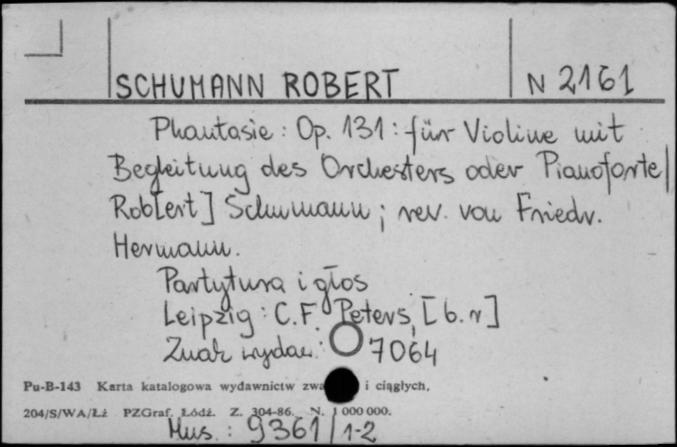 SCHUMANN ROBERT N 2161
Phantasie : Op. 131 : für Violine mit
Begleitung des Orchesters oder Pianoforte /
Rob[ert] Schumann ; rev. von Friedr.
Hermann.
Partytura i głos
Leipzig : C.F. Peters, [b.r]
Znak wydaw.: 7064
Pu-B-143 Karta katalogowa wydawnictw i ciągłych,
204/S/WA/Łż PZGraf. Łódź. Z. 304-86. N. 1 000 000.
Mus. : 9361/1-2